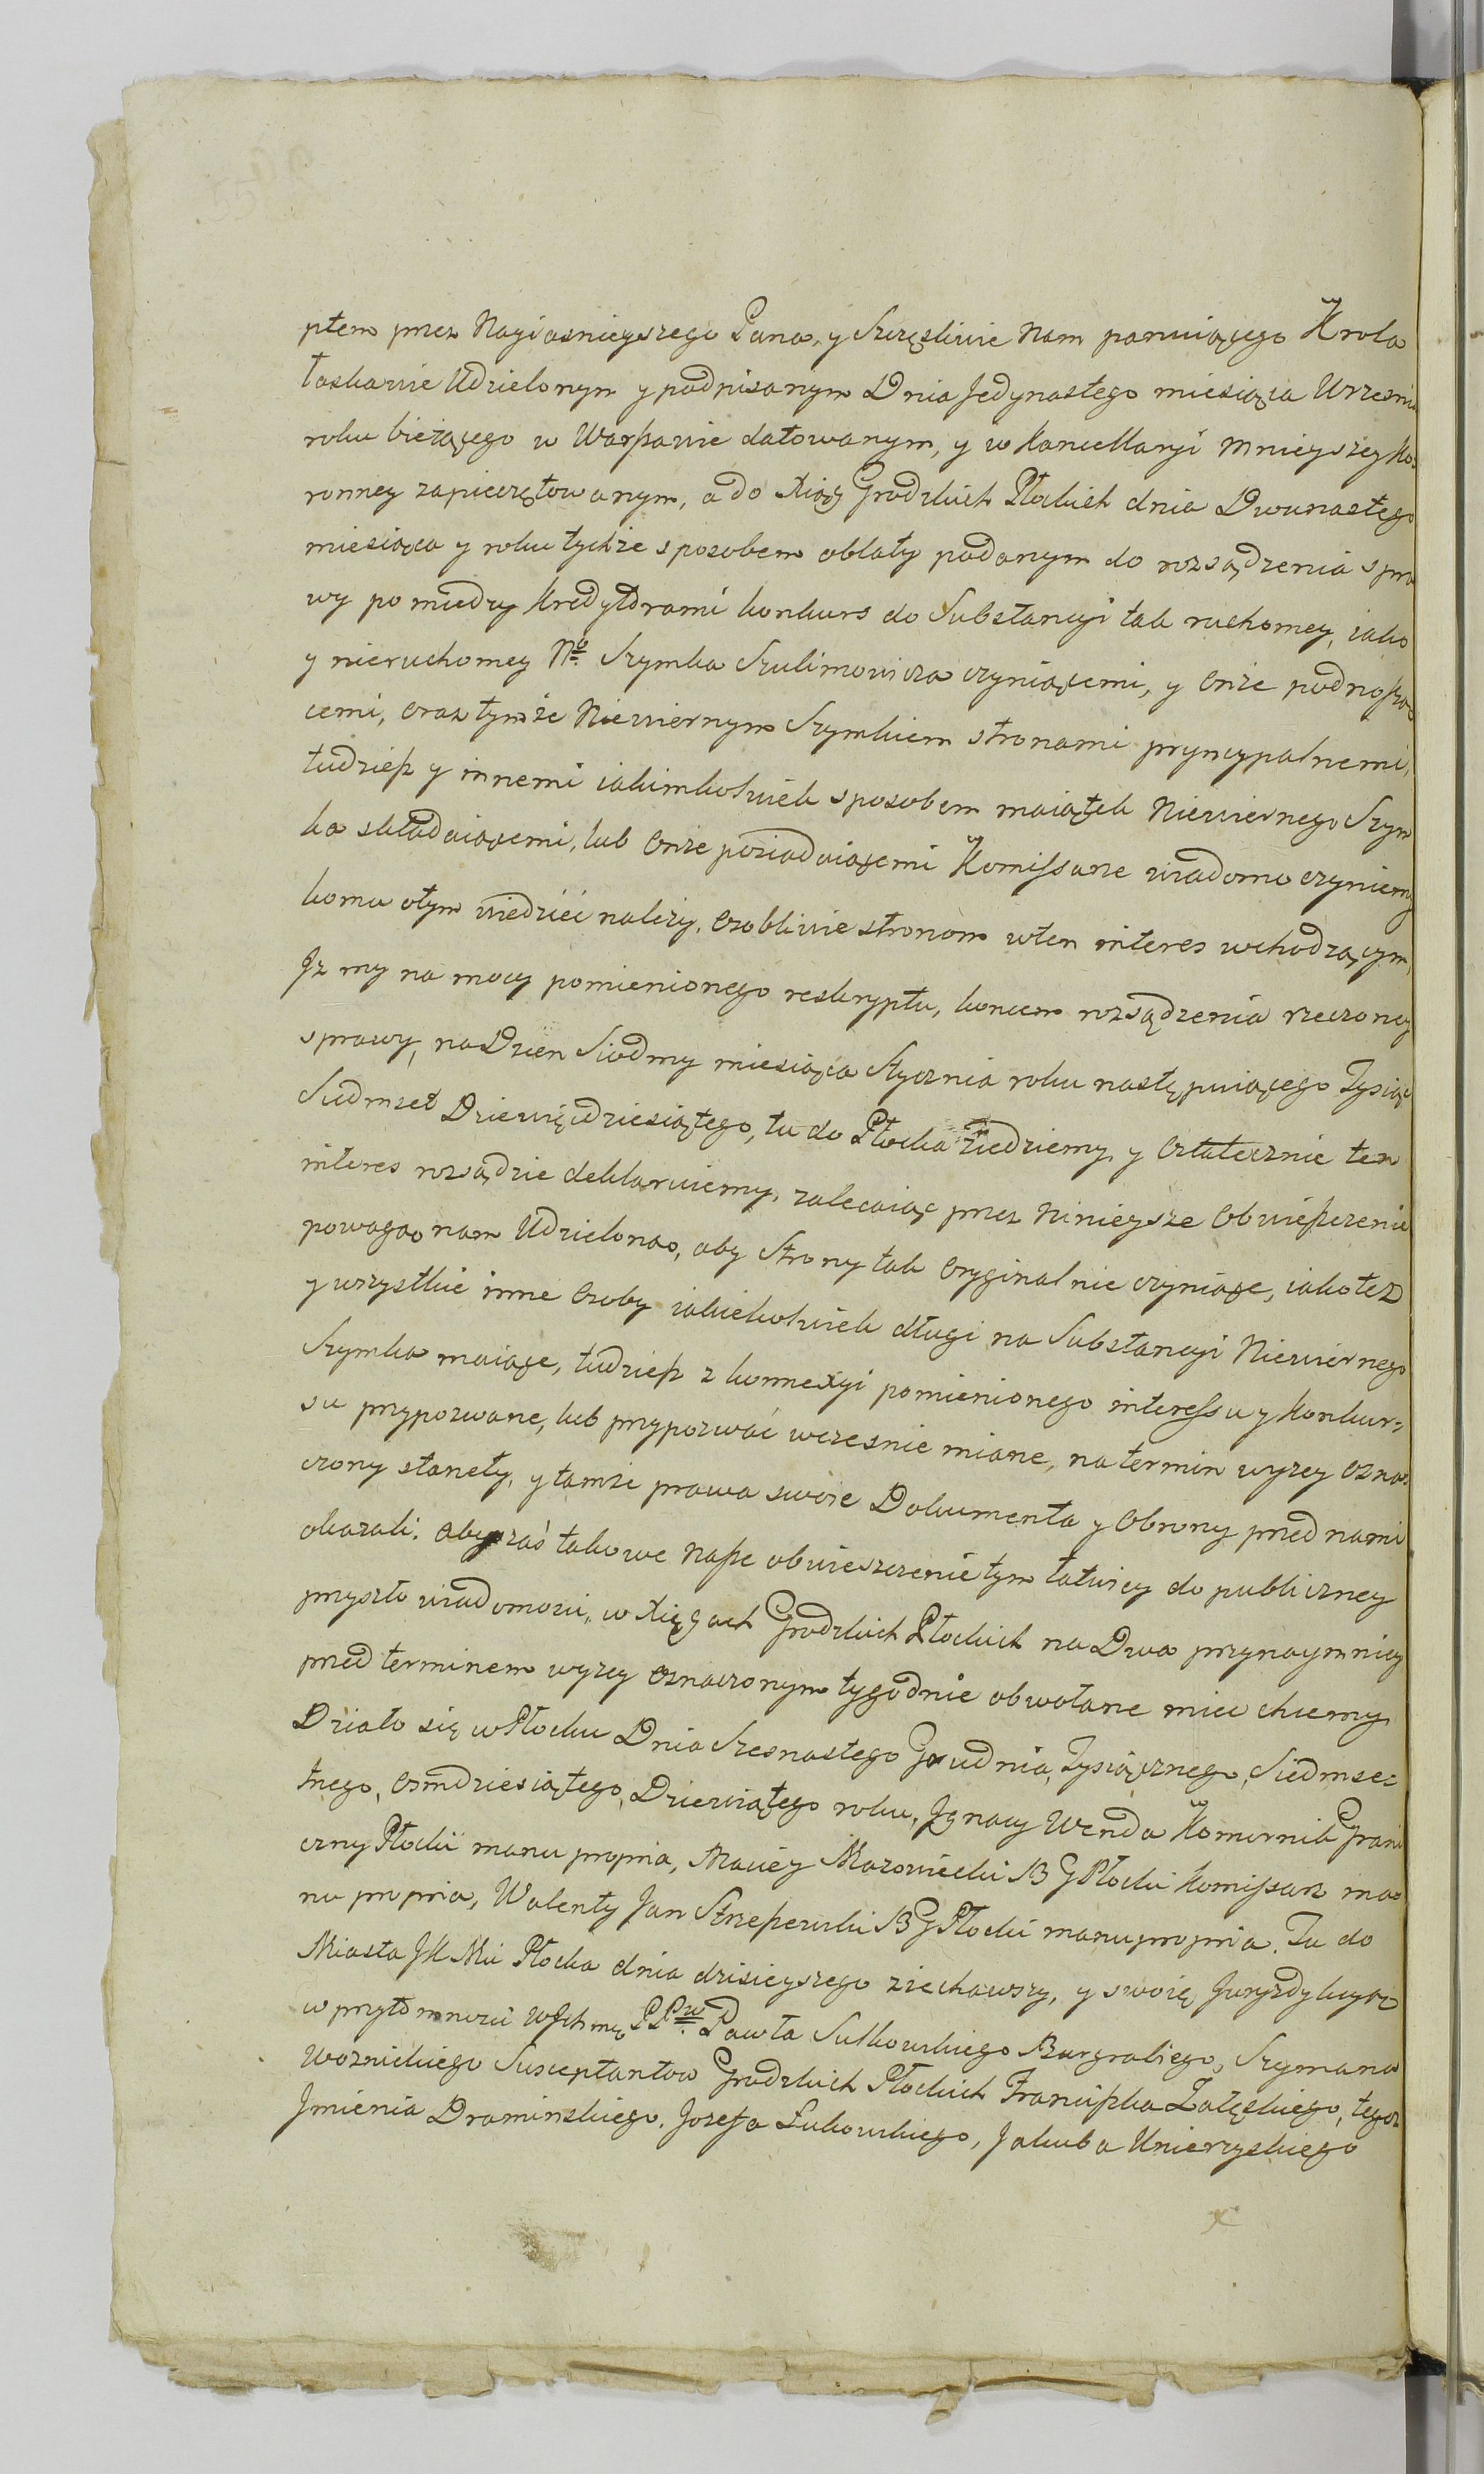 ptem przez Nayiasnieyszego Pana, y Szczęsliwie Nam panuiącego Krola
łaskawie Udzielonym y podpisanym Dnia Jedynastego miesiąca Wrzesnia
roku bieżącego w Warszawie datowanym, y w Kancellaryi Mnieyszey Ko
ronney zapieczętowanym, a do Xiąg Grodzkich Płockich dnia Dwunastego
miesiąca y roku tychże sposobem oblaty podanym do rozsądzenia spra
wy pomiedzy Kredytorami konkurs do Substancyi tak ruchomey, iako
y nieruchomey Ngo Szymka Szulimowicza czyniącemi, y Onże podnoszą
cemi, oraz tymże Niewiernym Szymkiem stronami pryncypalnemi,
tudziesz y innemi iakimkolwiek sposobem maiątek Niewiernego Szym
ka składaiącemi, lub Onże posiadaiącemi Kommissarze wiadomo czyniemy
komu otym wiedzieć należy, osobliwie stronom wten interes wchodzącym,
Jż my na mocy pomienionego reskryptu, koncem rozsądzenia rzeczoney
sprawy, na Dzien Siodmy miesiąca Stycznia roku następuiącego Tysiąc
Siedmset Dziewięćdziesiątego, tu do Płocka ziedziemy, y Ostatecznie ten
interes rozsądzie deklaruiemy, zalecaiąc przez Ninieysze Obwieszczenie
powagą nam Udzieloną, aby Strony tak Oryginalnie czyniące, iakotez
y wszystkie inne Osoby iakiekolwiek długi na Substancyi Niewiernego
Szymka maiące, tudziesz z konnexyi pomienionego interessu y Konkur-
su przypozwane, lub przypozwać wczesnie miane, na termin wyzey ozna
czony staneły, y tamże prawa swoie Dokumenta y Obrony przed nami
okazali. Aby zaś takowe nasze obwieszczenie tym łatwiey do publiczney
przyszło wiadomosci, w Xięgach Grodzkich Płockich na Dwa przynaymniey
przed terminem wyzey oznaczonym tygodnie obwołane miec chcemy,
Działo się w Płocku Dnia Szesnastego Grudnia, Tysiącznego, Siedmse-
tnego, Osmdziesiątego, Dziewiątego roku, Jgnacy Wenda Komornik Grani
czny Płocki manu propria, Maciey Mazowiecki B G Płocki Komissarz ma
nu propria, Walenty Jan Strzeszewski B G Płocki manu propria. Tu do
Miasta JK Mci Płocka dnia dzisieyszego ziechawszy, y swoię Juryzdykcyą
w przytomnosci WJchmę PPw Pawła Sulkowskiego Burgrabiego, Szymana
Woznickiego Susceptantow Grodzkich Płockich Franciszka Załęskiego, tegoz
Jmienia Draminskiego, Jozefa Łukowskiego, Jakuba Unierzyskiego